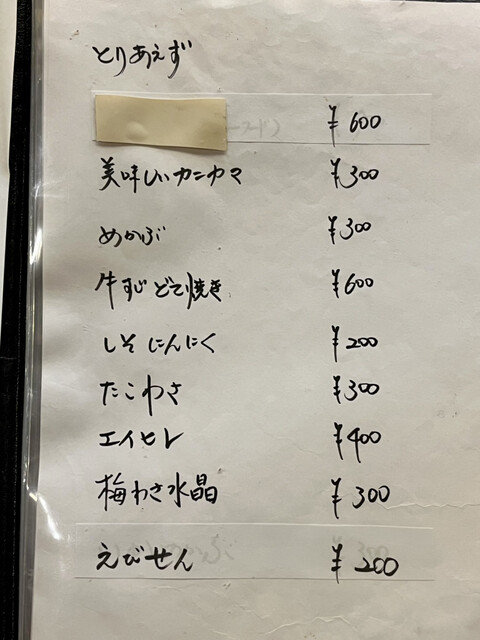 とりあえず
¥600
美味しいカニカマ ¥300
めかぶ ¥300
牛すじどて焼き ¥600
しそにんにく ¥200
たこわさ ¥300
エイヒレ ¥400
梅わさ水晶 ¥300
えびせん ¥200